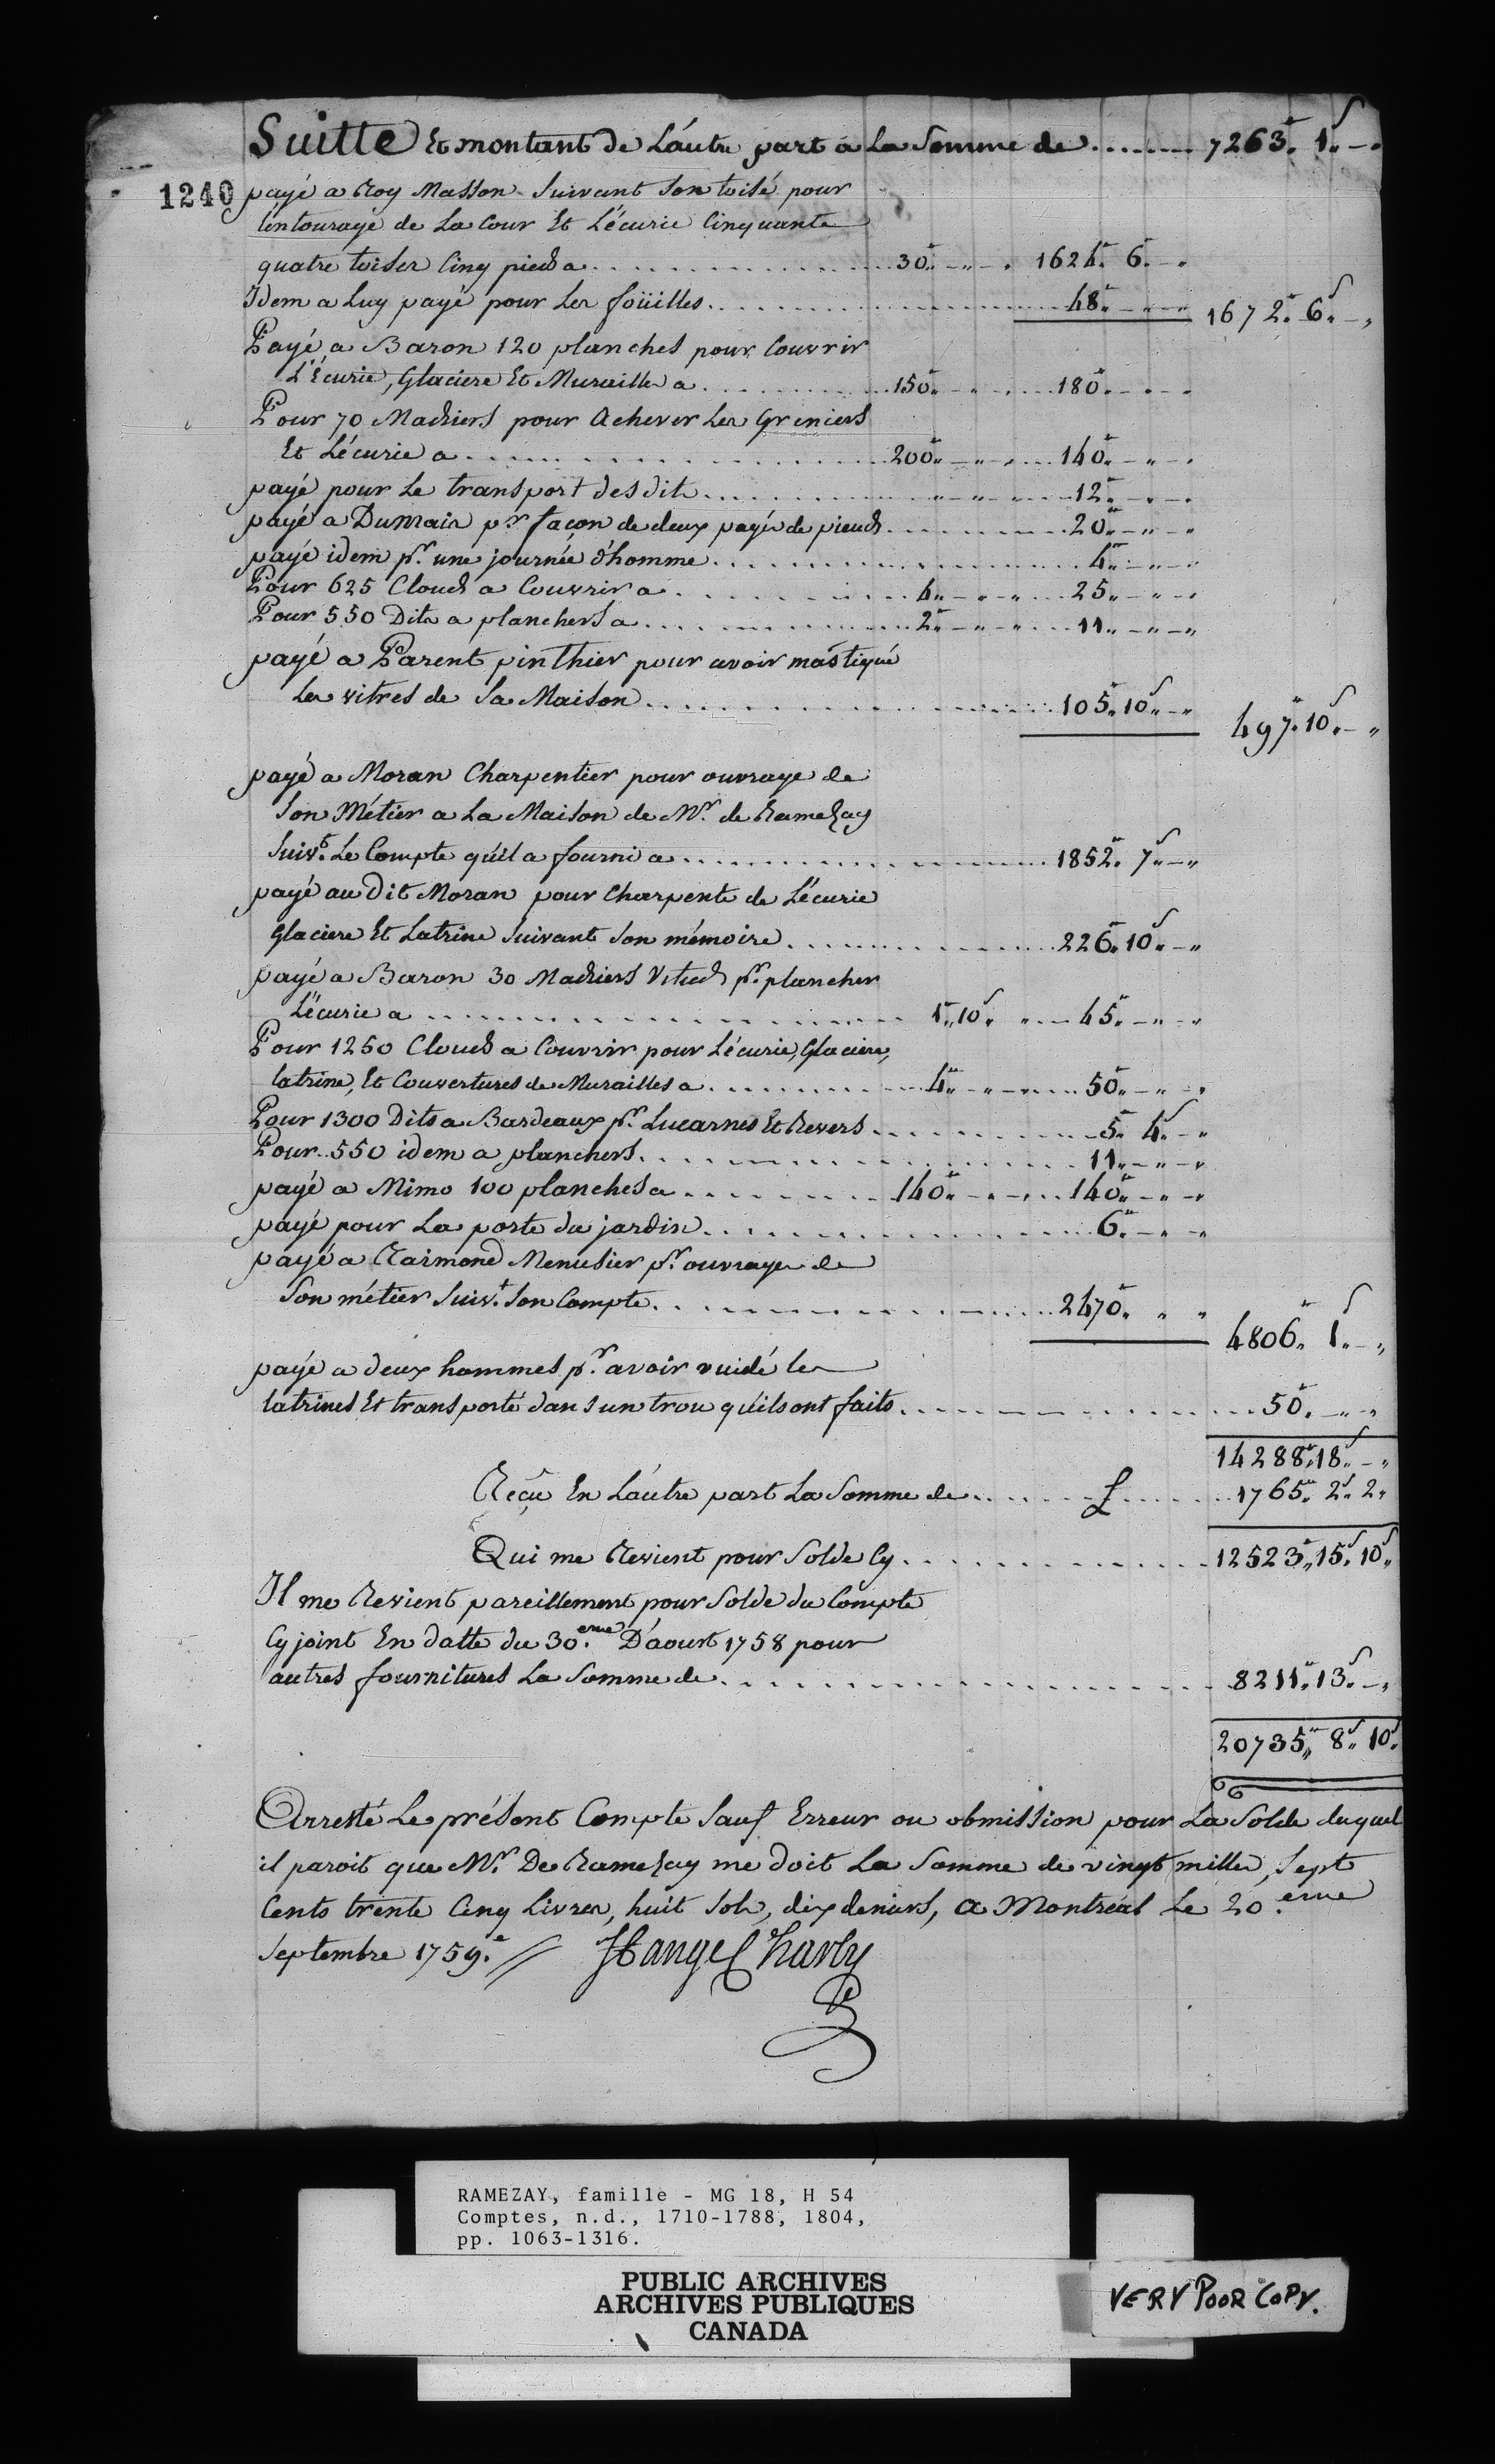 Suitte Et montant de L'autre part a La Somme de ......... 7263.# 1.s -.
1240
payé a Roy Masson Suivant Son toisé pour
L'entourage de La Cour Et L'écurie Cinquante
quatre toises Cinq pieds a ......... 30.# - " - . 1624.# 6. - .
Idem a Luy payé pour Les foüilles ......... 48.# - " - " 1672.# 6.s - ,
Payé a Baron 120 planches pour Couvrir
L'Ecurie, Glaciere Et Murailles a ......... 150.# - " - ....180.# - . - .
Pour 70 Madriers pour Achever Les Greniers
Et L'écurie a ......... 200.# - " - ....140.# - " - .
payé pour Le transport desdits ......... 12.# - . - .
payé a Dumais pr. façon de deux payés de pieuds ......... 20.# - " - .
payé idem pr. une journée d'homme ......... 4.# - " - "
Pour 625 Clouds a Couvrir a ......... 4.# - " - " ....25.# - " - .
Pour 550 Dits a planchers a ......... 2.# - " - " ....11.# - " - "
payé a Parent pinthier pour avoir mastiqué
Les vitres de Sa Maison ......... 105.# 10.s - "
497.# 10.s - "
payé a Moran Charpentier pour ouvrage de
Son Métier a La Maison de Mr. de Ramezay
Suivt. Le Compte qu'il a fourni a ......... 1852.# 7.s - "
payé au dit Moran pour Charpente de L'écurie
Glaciere Et Latrine Suivant Son mémoire ......... 226.# 10.s - "
payé a Baron 30 Madriers pr. plancher
L'écurie a ......... 1.# 10.s " ....45.# - " - "
Pour 1250 Clouds a Couvrir pour L'écurie, Glaciere,
latrine, Et Couvertures de Murailles a ......... 4.# - " - ....50.# - " - .
Pour 1300 Dits a Bardeaux pr. Lucarnes Et Revers ......... 5.# 4.s - "
Pour 550 idem a planchers ......... 11.# - " - "
payé a Mimo 100 planches a ......... 140.# - " - ....140.# - " - "
payé pour La porte du jardin ......... 6.# - " - "
payé a Raimond Menusier pr. ouvrages de
Son métier Suivt. Son Compte ......... 2470.# " "
4806.# 1.s - "
payé a deux hommes pr. avoir vuidé les
latrines Et transporté dans un trou qu'ils ont faits ......... 50.# - " - "
14288.# 18.s - "
Reçu En L'autre part La Somme de ......... £ ......... 1765.# 2.s 2.
Qui me Revient pour Solde Cy ......... 12523.# 15.s 10.
Il me Revient pareillement pour Solde du Compte
Cy joint En datte du 30.eme D'aoust 1758 pour
autres fournitures La Somme de ......... 8211.# 13.s - "
20735.# 8.s 10.
Arresté Le présent Compte Sauf Erreur ou obmission pour La Solde duquel
il paroit que Mr. De Ramezay me doit La Somme de vingt milles, Sept
Cents trente Cinq Livres, huit Sols, dix deniers, a Montréal Le 20.eme
Septembre 1759. // St ange Charly
RAMEZAY, famille - MG 18, H 54
Comptes, n.d., 1710-1788, 1804,
pp. 1063-1316.
PUBLIC ARCHIVES
ARCHIVES PUBLIQUES
CANADA
VERY POOR COPY.